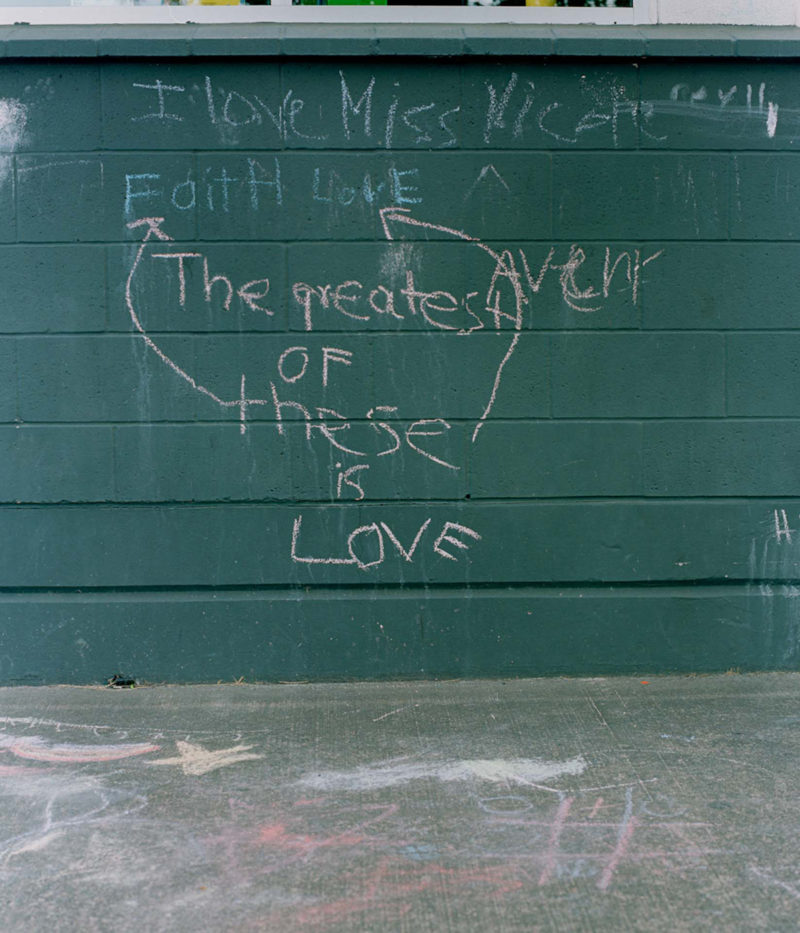 I love Miss Nicole
FaitH LovE
The greatest Avery
OF
these
is
LOVE